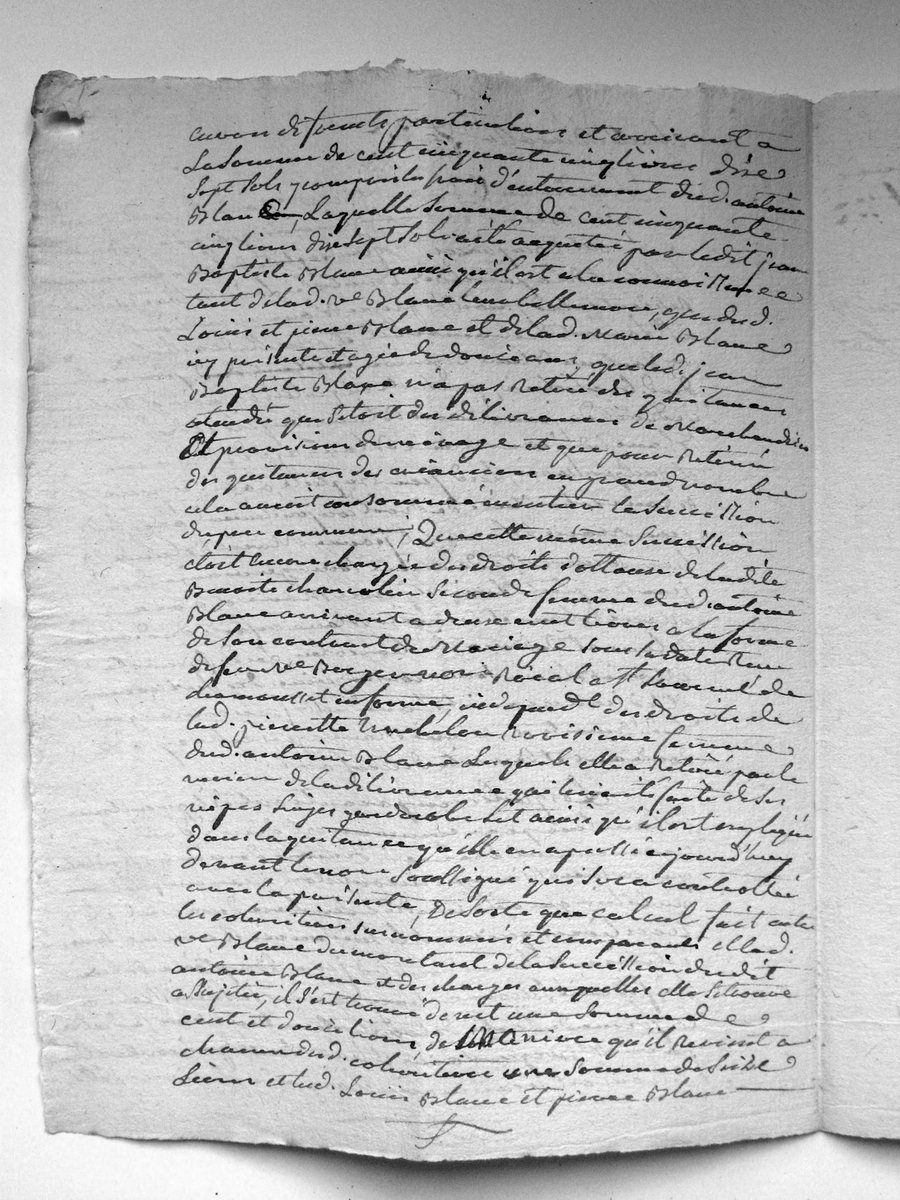 envers differents particuliers et arrivant a
La Somme de cent cinquante cinq livres dixe
Sept Sols y compris les frais d'enterrement dud. antoine
Blanc, Laquelle Somme de cent cinquante
cinq livres dix Sept Sols a esté acquitée par ledit jean
Baptiste Blanc ainsi qu'il est a la connoissance
tant de lad. ve Blanc leur belle mere, que dud.
Louis et pierre Blanc et de lad. Marie Blanc
icy presente et agée de douze ans, que led. jean
Baptiste Blanc n'a pas Retiré des quitances
atendu que S'etoit des délivrances de Marchandises
Et provisions de ménage et que pour Retirer
des quitances des créanciers en grand nombre
cela auroit consommé en entier la Succession
du pere commun, Que cette même Succession
étoit encore chargée des droits d'ottause de ladite
Benoite chancolin Seconde femme dud. antoine
Blanc arrivant a deux cent livres a la forme
de Son contrat de Mariage Sous Sa date Reçu
de feu me Boyer nore Roial a St Laurent de
chamousset en forme, independt. des droits de
lad. pierrette troisieme femme
dud. antoine Blanc Lesquels elle a Retiré par le
moien de la délivrance qui luy a été faite de Ses
nipes linges garderobe Et ainsi qu'il est expliqué
dans la quitance qu'elle en a passé aujourd'huy
devant le nore Soussigné qui Sera controllée
avec la presente, De Sorte que calcul fait entre
les cohéritiers surnommés et comparants et lad.
ve Blanc du montant de la Succession dudit
antoine Blanc et des charges auxquelles elle Se trouve
assujetie, il S'est trouvé de net une Somme de
cent et douze livres de maniere qu'il Revient a
chacun dud. cohéritiers une Somme de Seize
Livres et lad. Louis Blanc et pierre Blanc